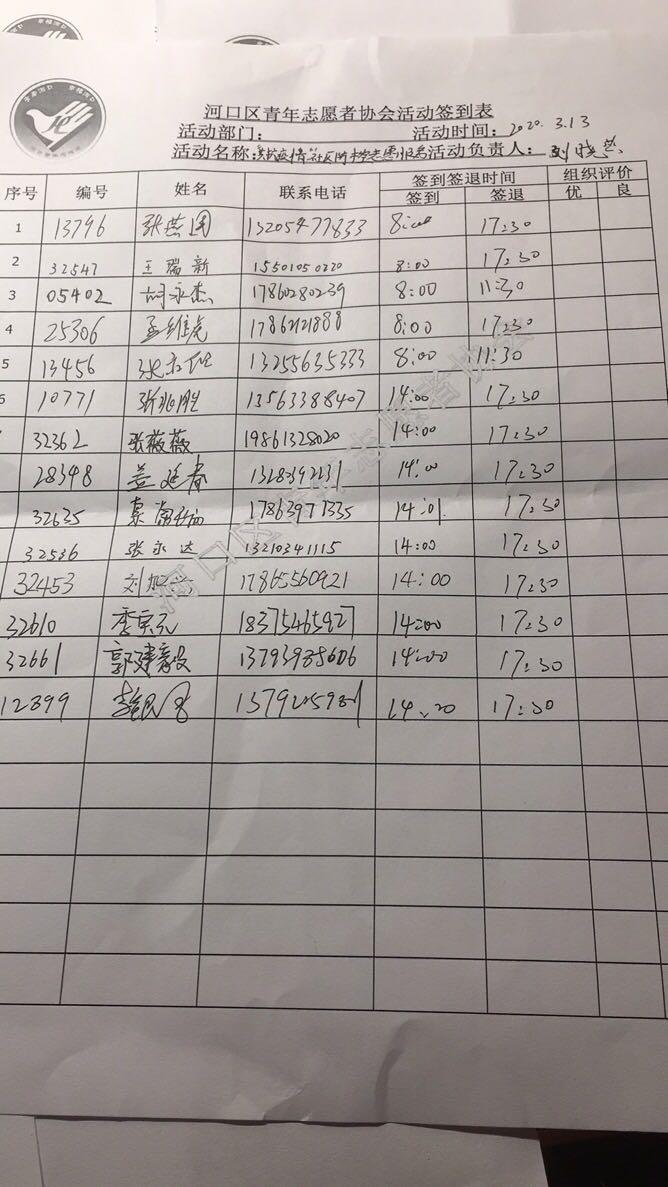 河口区青年志愿者协会活动签到表
活动部门： 活动时间：2020.3.13
活动名称： 活动负责人：刘晓芸
序号 编号 姓名 联系电话 签到签退时间 组织评价
签到 签退 优 良
1 13796 张燕国 13205477833 8:00 17:30
2 32547 王瑞新 15501050220 8:00 17:30
3 05402 胡永杰 17860280239 8:00 11:30
4 25306 孟维虎 17862121888 8:00 17:30
5 13456 13255635333 8:00 11:30
10771 张兆胜 13563388407 14:00 17:30
32362 张薇薇 19861328020 14:00 17:30
28348 盖延春 1328392231 14:00 17:30
32635 17863977335 14:01 17:30
32536 张永达 13210341115 14:00 17:30
32453 刘加兴 17865560921 14:00 17:30
32610 李京元 18375465927 14:00 17:30
32661 郭建毅 13793985606 14:00 17:30
12899 14:20 17:30
河口区青年志愿者协会